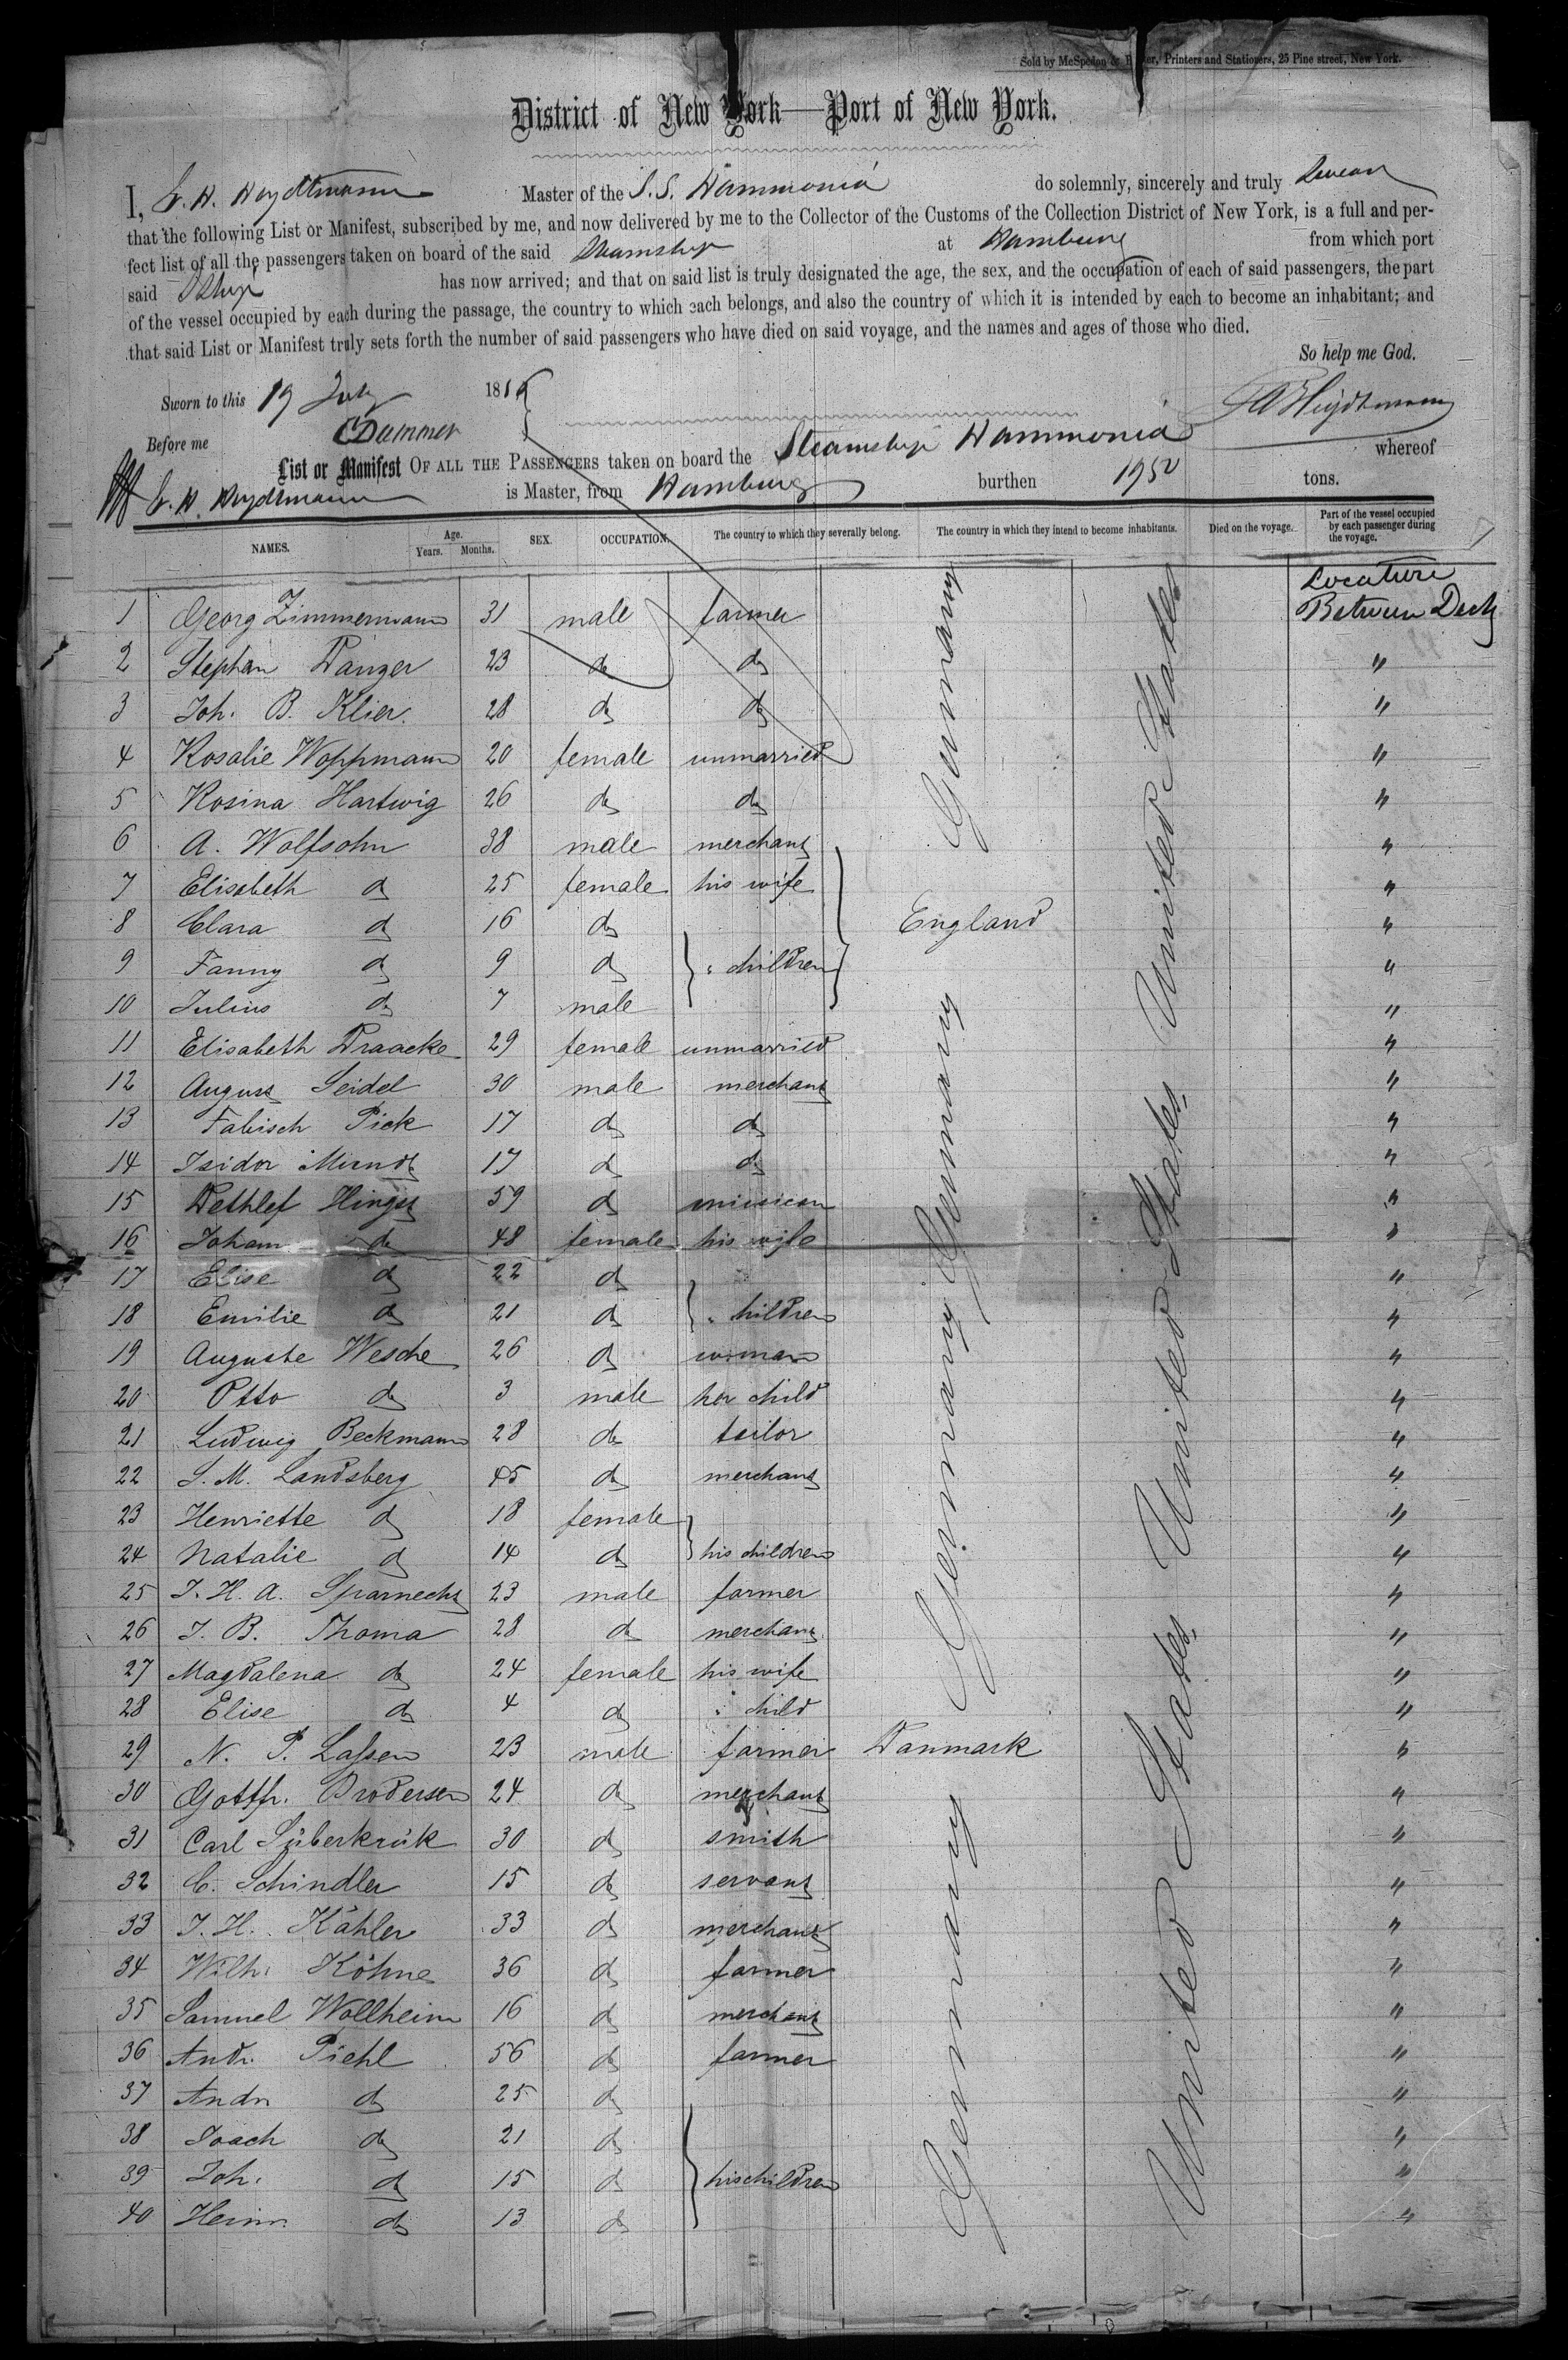 Sold by McSpedon & Baker, Printers and Stationers, 25 Pine street, New York.
District of New York—Port of New York.
I, H. Heydtmann Master of the S.S. Hammonia do solemnly, sincerely and truly swear
that the following List or Manifest, subscribed by me, and now delivered by me to the Collector of the Customs of the Collection District of New York, is a full and per-
fect list of all the passengers taken on board of the said Steamship at Hamburg from which port
said Ship has now arrived; and that on said list is truly designated the age, the sex, and the occupation of each of said passengers, the part
of the vessel occupied by each during the passage, the country to which each belongs, and also the country of which it is intended by each to become an inhabitant; and
that said List or Manifest truly sets forth the number of said passengers who have died on said voyage, and the names and ages of those who died.
So help me God.
Sworn to this 19 July 186
Heydtmann
Before me
List or Manifest OF ALL THE PASSENGERS taken on board the Steamship Hammonia whereof
H. Heydtmann is Master, from Hamburg burthen 1950 tons.
NAMES. Age. Years. Months. SEX. OCCUPATION. The country to which they severally belong. The country in which they intend to become inhabitants. Died on the voyage. Part of the vessel occupied by each passenger during the voyage.
Germany United States
1 Georg Zimmermann 31 male farmer Between Deck
2 Stephan Danzer 23 do do "
3 Joh. B. Klier 28 do do "
4 Rosalie Woppmann 20 female unmarried "
5 Rosina Hartwig 26 do do "
6 A. Wolfsohn 38 male merchant "
7 Elisabeth do 25 female his wife "
8 Clara do 16 do England "
9 Fanny do 9 do " children "
10 Julius do 7 male "
11 Elisabeth Draacke 29 female unmarried Germany "
12 August Seidel 30 male merchant United States "
13 Fabisch Pick 17 do do "
14 Isidor 17 do do "
15 Dethlef Hingst 59 do musician "
16 Joham do 48 female his wife "
17 Elise do 22 do "
18 Emilie do 21 do " children Germany "
19 Auguste Wesche 26 do woman "
20 Otto do 3 male her child "
21 Ludwig Beckmann 28 do tailor "
22 S. M. Landsberg 45 do merchant "
23 Henriette do 18 female "
24 Natalie do 14 do his children "
25 J. H. A. Sparnecht 23 male farmer United States "
26 J. B. Thoma 28 do merchant "
27 Magdalena do 24 female his wife "
28 Elise do 4 do " child "
29 N. P. Lassen 23 male farmer Danmark "
30 Gottfr. Brodersen 24 do merchant Germany "
31 Carl Süberkrük 30 do smith "
32 C. Schindler 15 do servant "
33 J. H. Kähler 33 do merchant "
34 Wilh. Köhne 36 do farmer "
35 Samuel Wollheim 16 do merchant "
36 Andr. Piehl 56 do farmer "
37 Andr. do 25 do "
38 Joach do 21 do "
39 Joh. do 15 do his children "
40 Heinr. do 13 do "